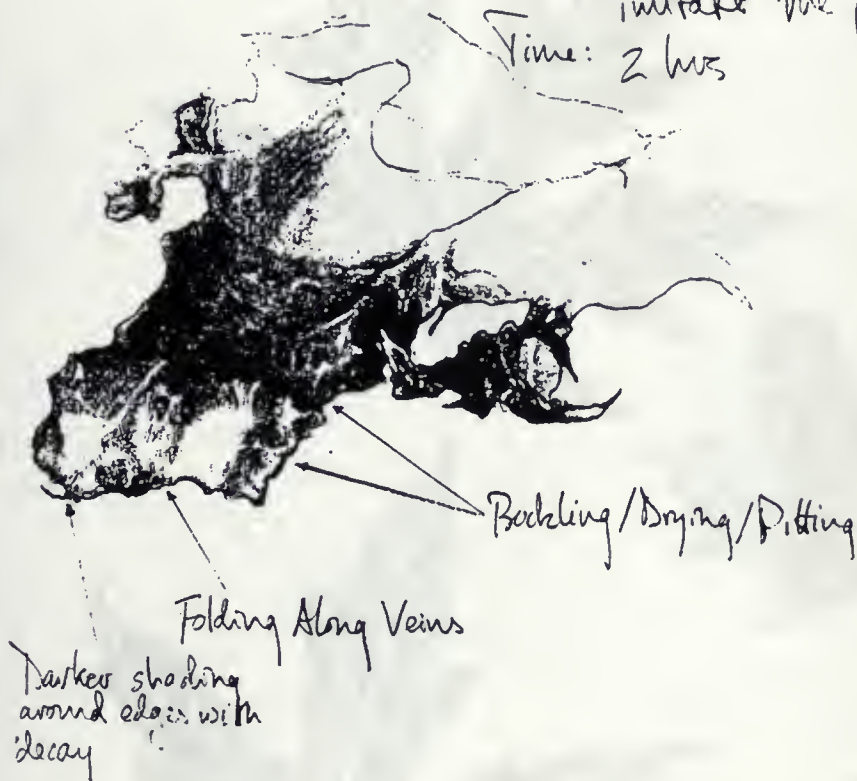 Time: 2 hrs
Buckling/Drying/Pitting
Folding Along Veins
Darker shading
around edges with
decay